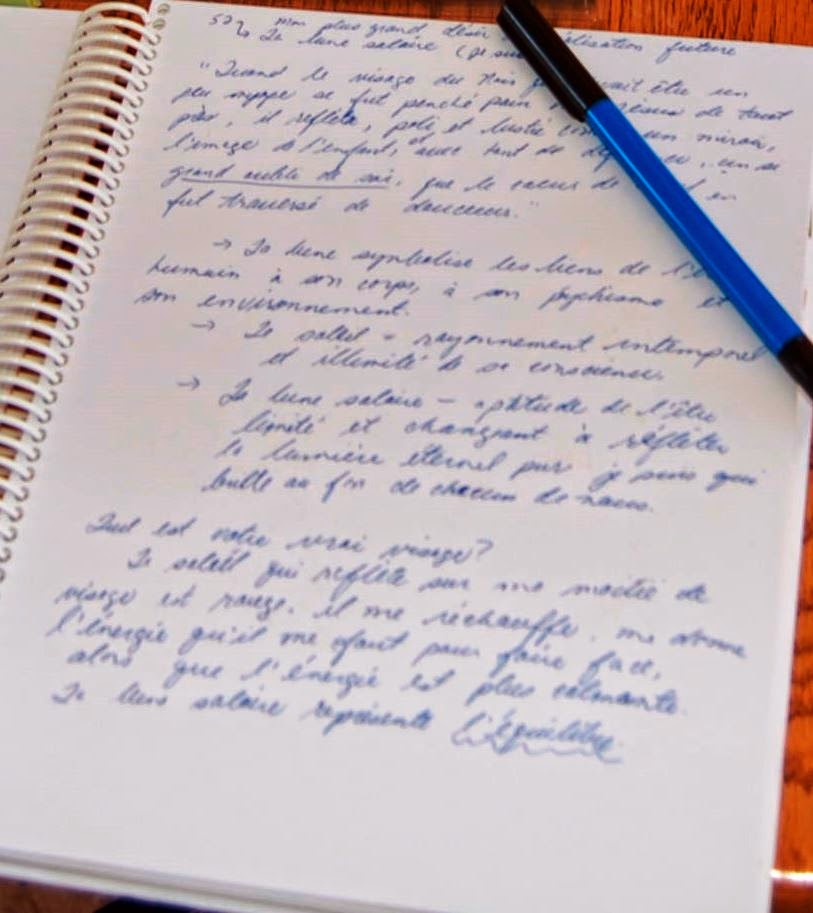 mon plus grand désir future
La lune solaire (je su
"Quand le visage du Nain vait être un
peu myope se fut penché pour de tout
près, il reflèta, poli et lustré un miroir,
l'image de l'enfant, et avec tant de un si
grand oubli de soi, que le coeur de en
fut traversé de douceur."
→ La lune symbolise les liens de l'ê
humain à son corps, à son psychisme et
son environnement.
→ Le soleil = rayonnement intemporel
et illimité de sa conscience.
→ La lune solaire – aptitude de l'être
limité et changeant à réfléter
la lumière éternel pur je suis qui
brille au fon de chacun de nous.
Quel est notre vrai visage?
Le soleil qui reflète sur ma moitié de
visage est rouge. il me réchauffe, me donne
l'énergie qu'il me faut pour faire face,
alors que l'énergie est plus calmante.
La lune solaire représente l'équilibre.